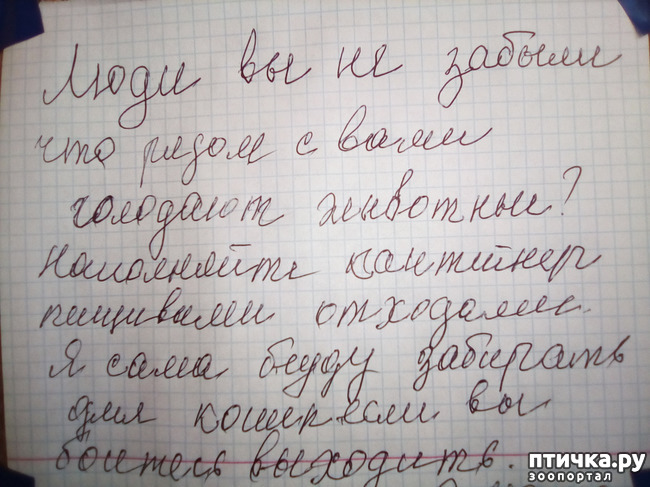 Люди вы не забыли
что рядом с вами
голодают животные?
Наполняйте контейнер
пищивами отходами.
Я сама буду забирать
для кошек если вы
боитесь выходить.
птичка.ру
зоопортал